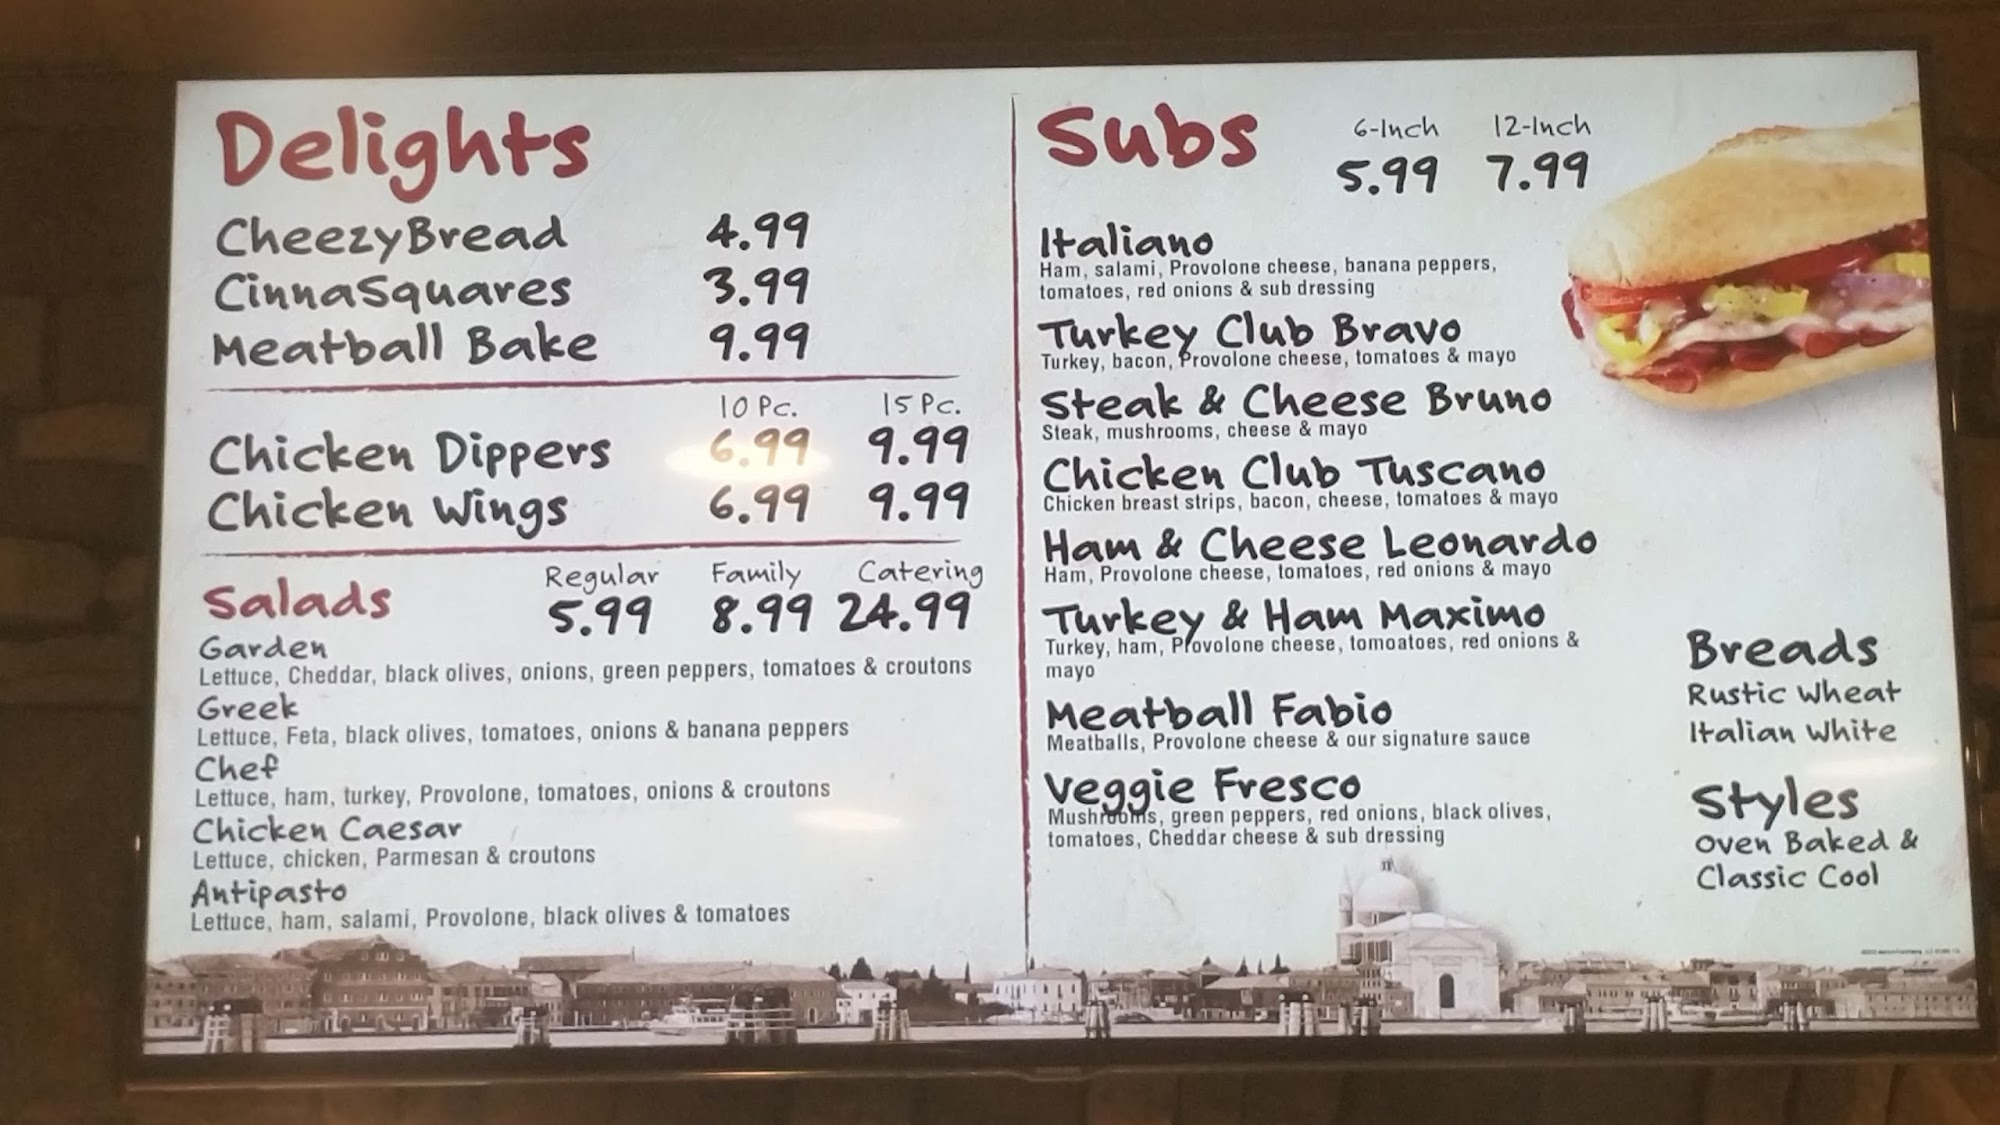 Delights
CheezyBread 4.99
CinnaSquares 3.99
Meatball Bake 9.99
10 Pc. 15 Pc.
Chicken Dippers 6.99 9.99
Chicken Wings 6.99 9.99
Regular Family Catering
Salads 5.99 8.99 24.99
Garden
Lettuce, Cheddar, black olives, onions, green peppers, tomatoes & croutons
Greek
Lettuce, Feta, black olives, tomatoes, onions & banana peppers
Chef
Lettuce, ham, turkey, Provolone, tomatoes, onions & croutons
Chicken Caesar
Lettuce, chicken, Parmesan & croutons
Antipasto
Lettuce, ham, salami, Provolone, black olives & tomatoes
Subs
6-Inch 12-Inch
5.99 7.99
Italiano
Ham, salami, Provolone cheese, banana peppers,
tomatoes, red onions & sub dressing
Turkey Club Bravo
Turkey, bacon, Provolone cheese, tomatoes & mayo
Steak & Cheese Bruno
Steak, mushrooms, cheese & mayo
Chicken Club Tuscano
Chicken breast strips, bacon, cheese, tomatoes & mayo
Ham & Cheese Leonardo
Ham, Provolone cheese, tomatoes, red onions & mayo
Turkey & Ham Maximo
Turkey, ham, Provolone cheese, tomoatoes, red onions &
mayo
Meatball Fabio
Meatballs, Provolone cheese & our signature sauce
Veggie Fresco
Mushrooms, green peppers, red onions, black olives,
tomatoes, Cheddar cheese & sub dressing
Breads
Rustic Wheat
Italian White
Styles
Oven Baked &
Classic Cool